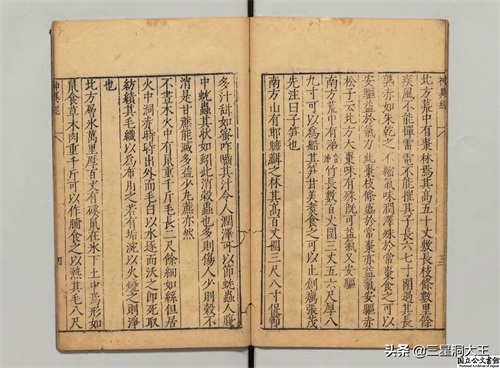 神異經
三
北方荒中有棗林焉其高五十丈敷長枝條數里餘
疾風不能偃雷電不能摧其子長六七寸圍過其長
熟赤如朱乾之不縮氣味潤澤殊於常棗食之可以
安軀益於氣力此棗枝條盛於常棗亦益氣安軀赤
松子云北方大棗味有殊既可益氣又安軀
南方荒中有涕竹長數百丈圍三丈五六尺厚八
九寸可以為船其笋甘美煮食之可以止創癘張茂
先注曰子笋也
南方山有之林其高百丈圍三尺八寸促節
多汁甜如蜜咋嚙其汁令人潤澤可以節蚘蟲人腹
中蚘蟲其狀如蚓此消穀蟲也多則傷人少則穀不
消是甘蔗能滅多益少凡蔗亦然
不晝木火中有鼠重千斤毛長二尺餘細如絲但居
火中洞赤時時出外而毛白以水逐而沃之即死取
紡績其毛織以為布用之若有垢涴以火燒之則淨
也
北方層冰萬里厚百丈有磎鼠在冰下土中焉形如
鼠食草木肉重千斤可以作脯食之以熱其毛八尺
神異經
四
头条 @三星洞大王
国立公文書館
National Archives of Japan